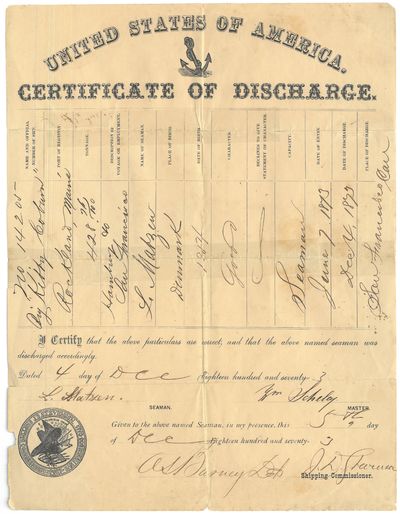 UNITED STATES OF AMERICA.
CERTIFICATE OF DISCHARGE.
NAME AND OFFICIAL NUMBER OF SHIP.
No 14205
Brig Kitty Coburn
PORT OF REGISTRY
Rockland, Maine
TONNAGE.
428
DESCRIPTION OF VOYAGE OR EMPLOYMENT.
Hamburg to San Francisco
NAME OF SEAMAN.
L. Matzen
PLACE OF BIRTH
Denmark
DATE OF BIRTH
CHARACTER
Good
CAPACITY.
Seaman
DATE OF ENTRY.
June 7 1873
DATE OF DISCHARGE.
Dec 4, 1873
PLACE OF DISCHARGE
San Francisco Cal
I Certify that the above particulars are correct, and that the above named seaman was
discharged accordingly.
Dated 4 day of Dec Eighteen hundred and seventy-3
L. Matzen. Wm
SEAMAN. MASTER.
Given to the above named Seaman, in my presence, this 5th day
of Dec Eighteen hundred and seventy-3
Shipping Commissioner.